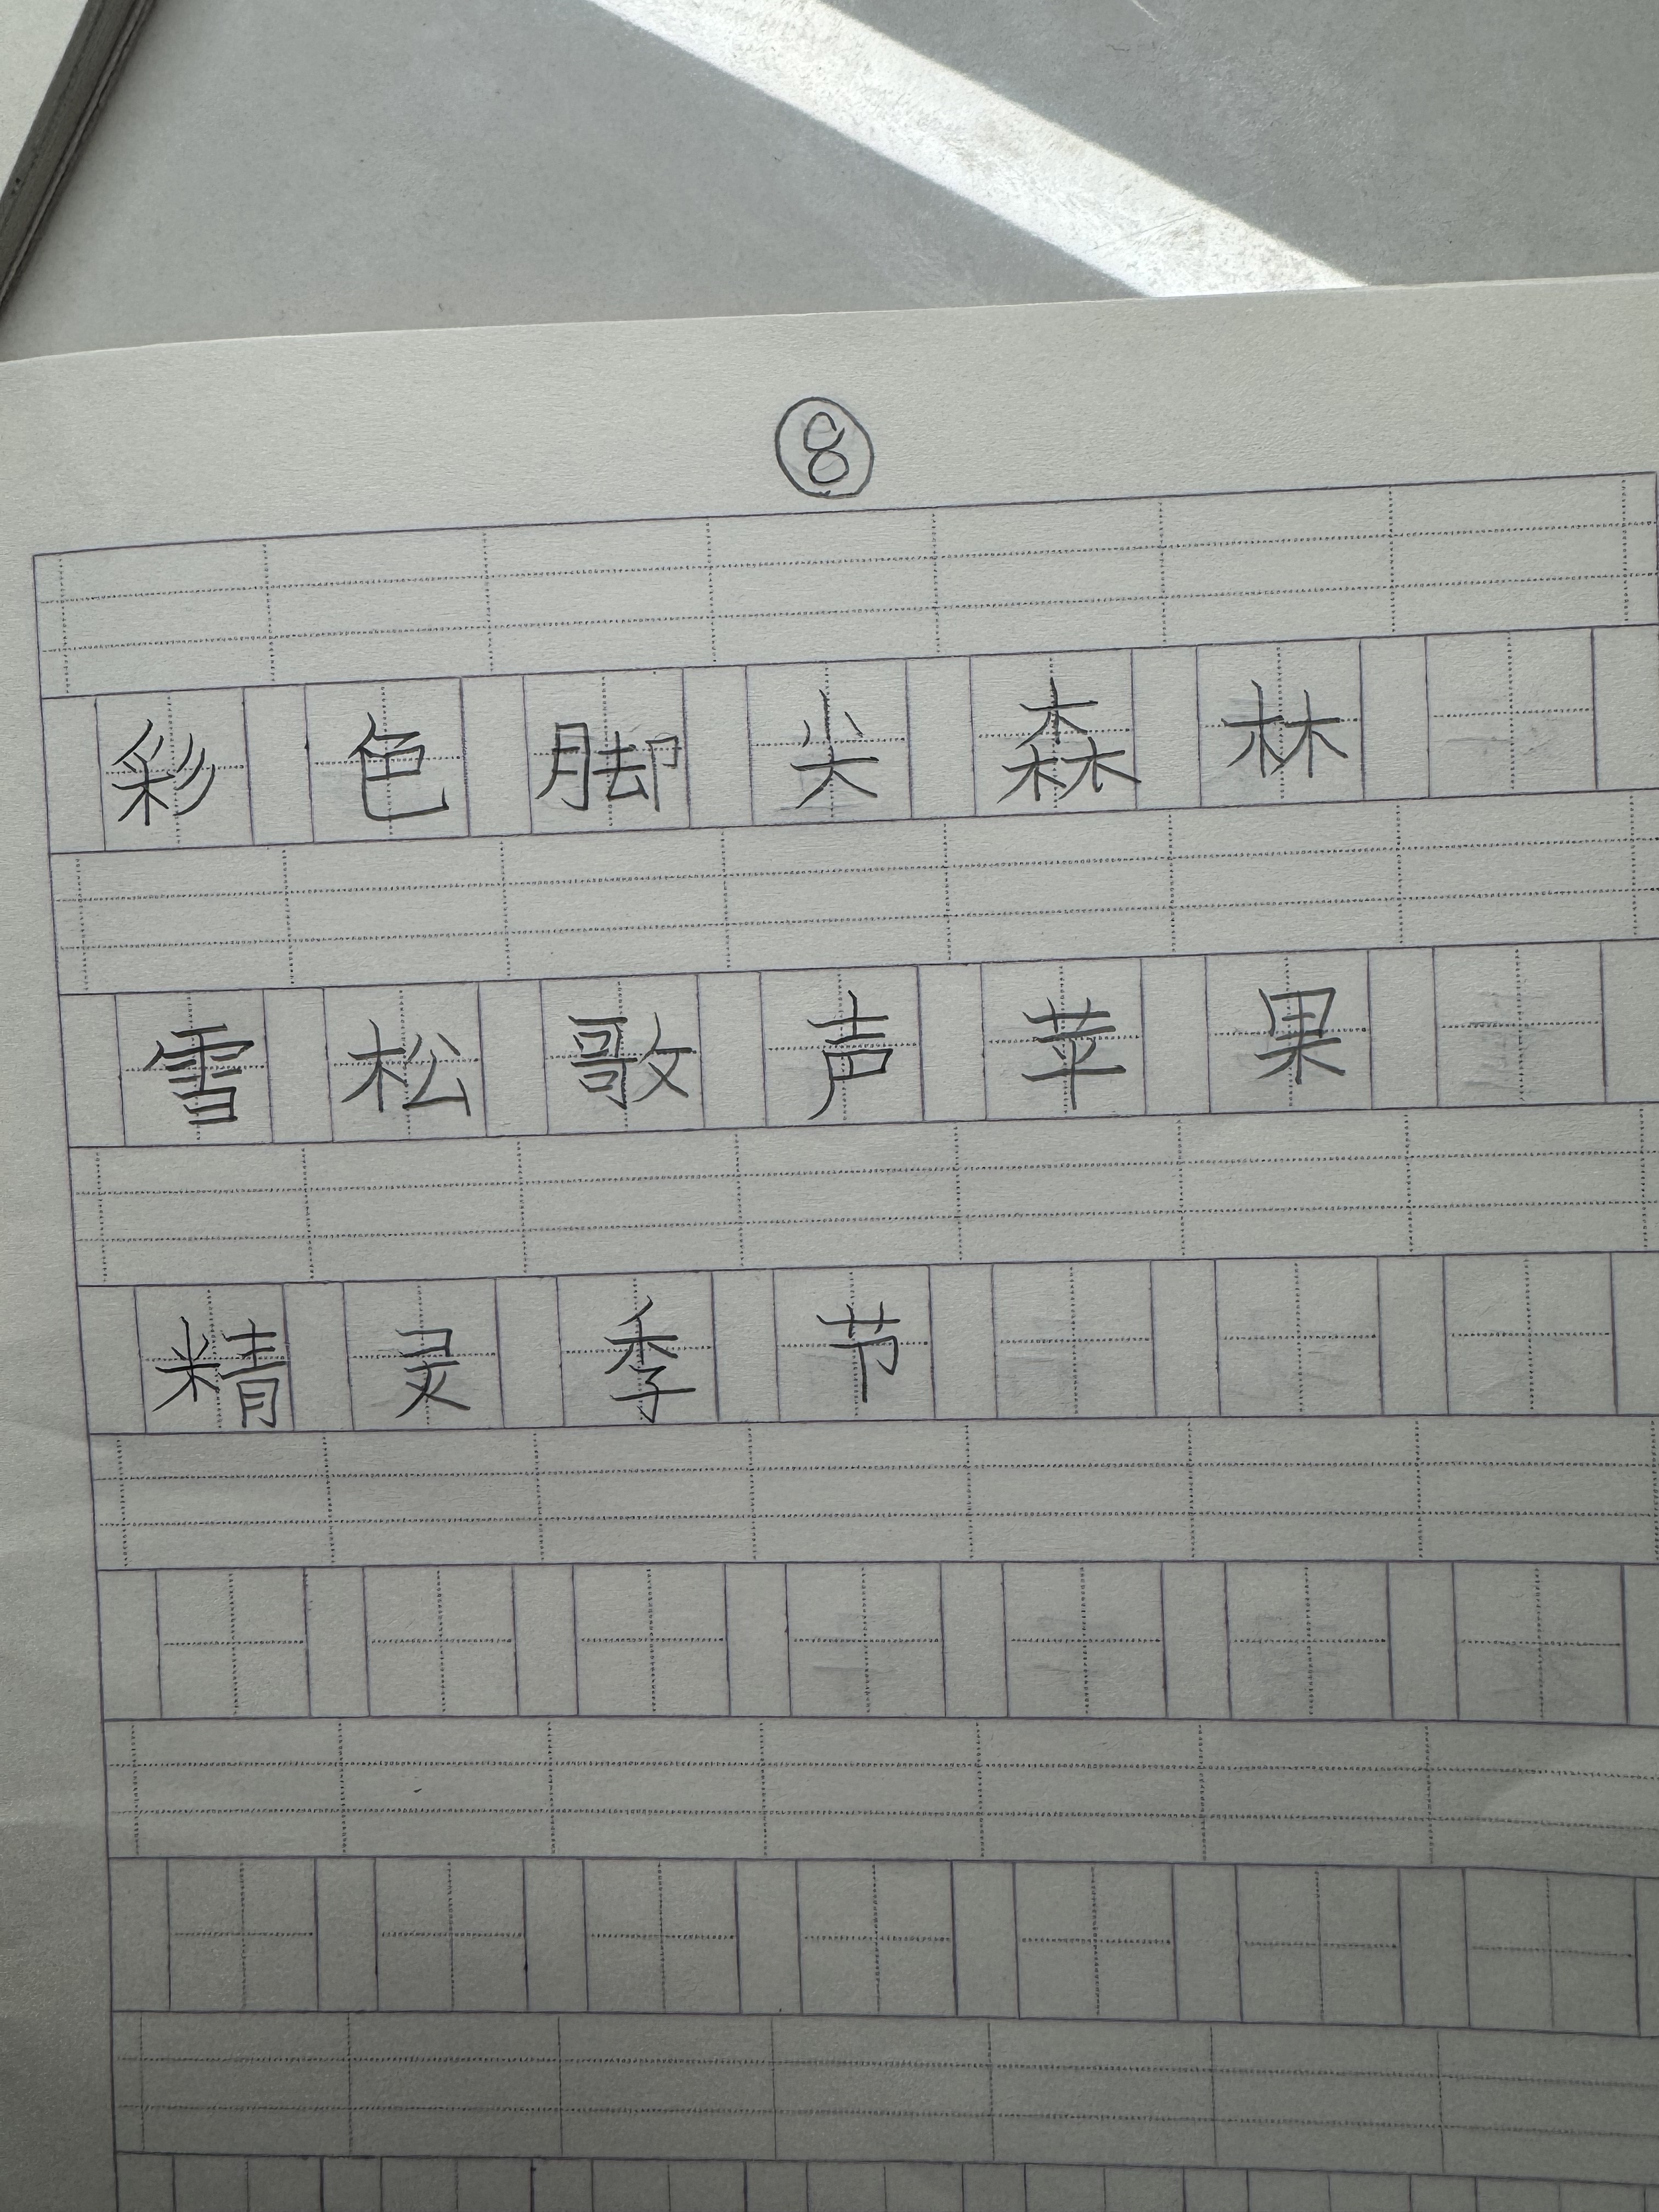 ⑧
彩色脚尖森林
雪松歌声苹果
精灵季节